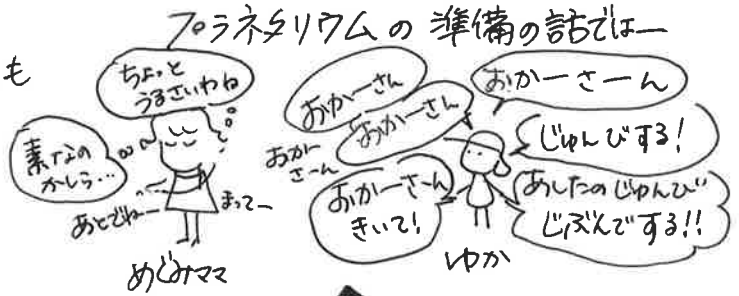 プラネタリウムの準備の話では—
も
ちょっと
うるさいわね
素なの
かしら…
あとでねー
まってー
めぐみママ
おかーさん
おかーさん
おかー
さーん
おかーさん
きいて!
おかーさーん
じゅんびする!
あしたのじゅんび
じぶんでする!!
ゆか